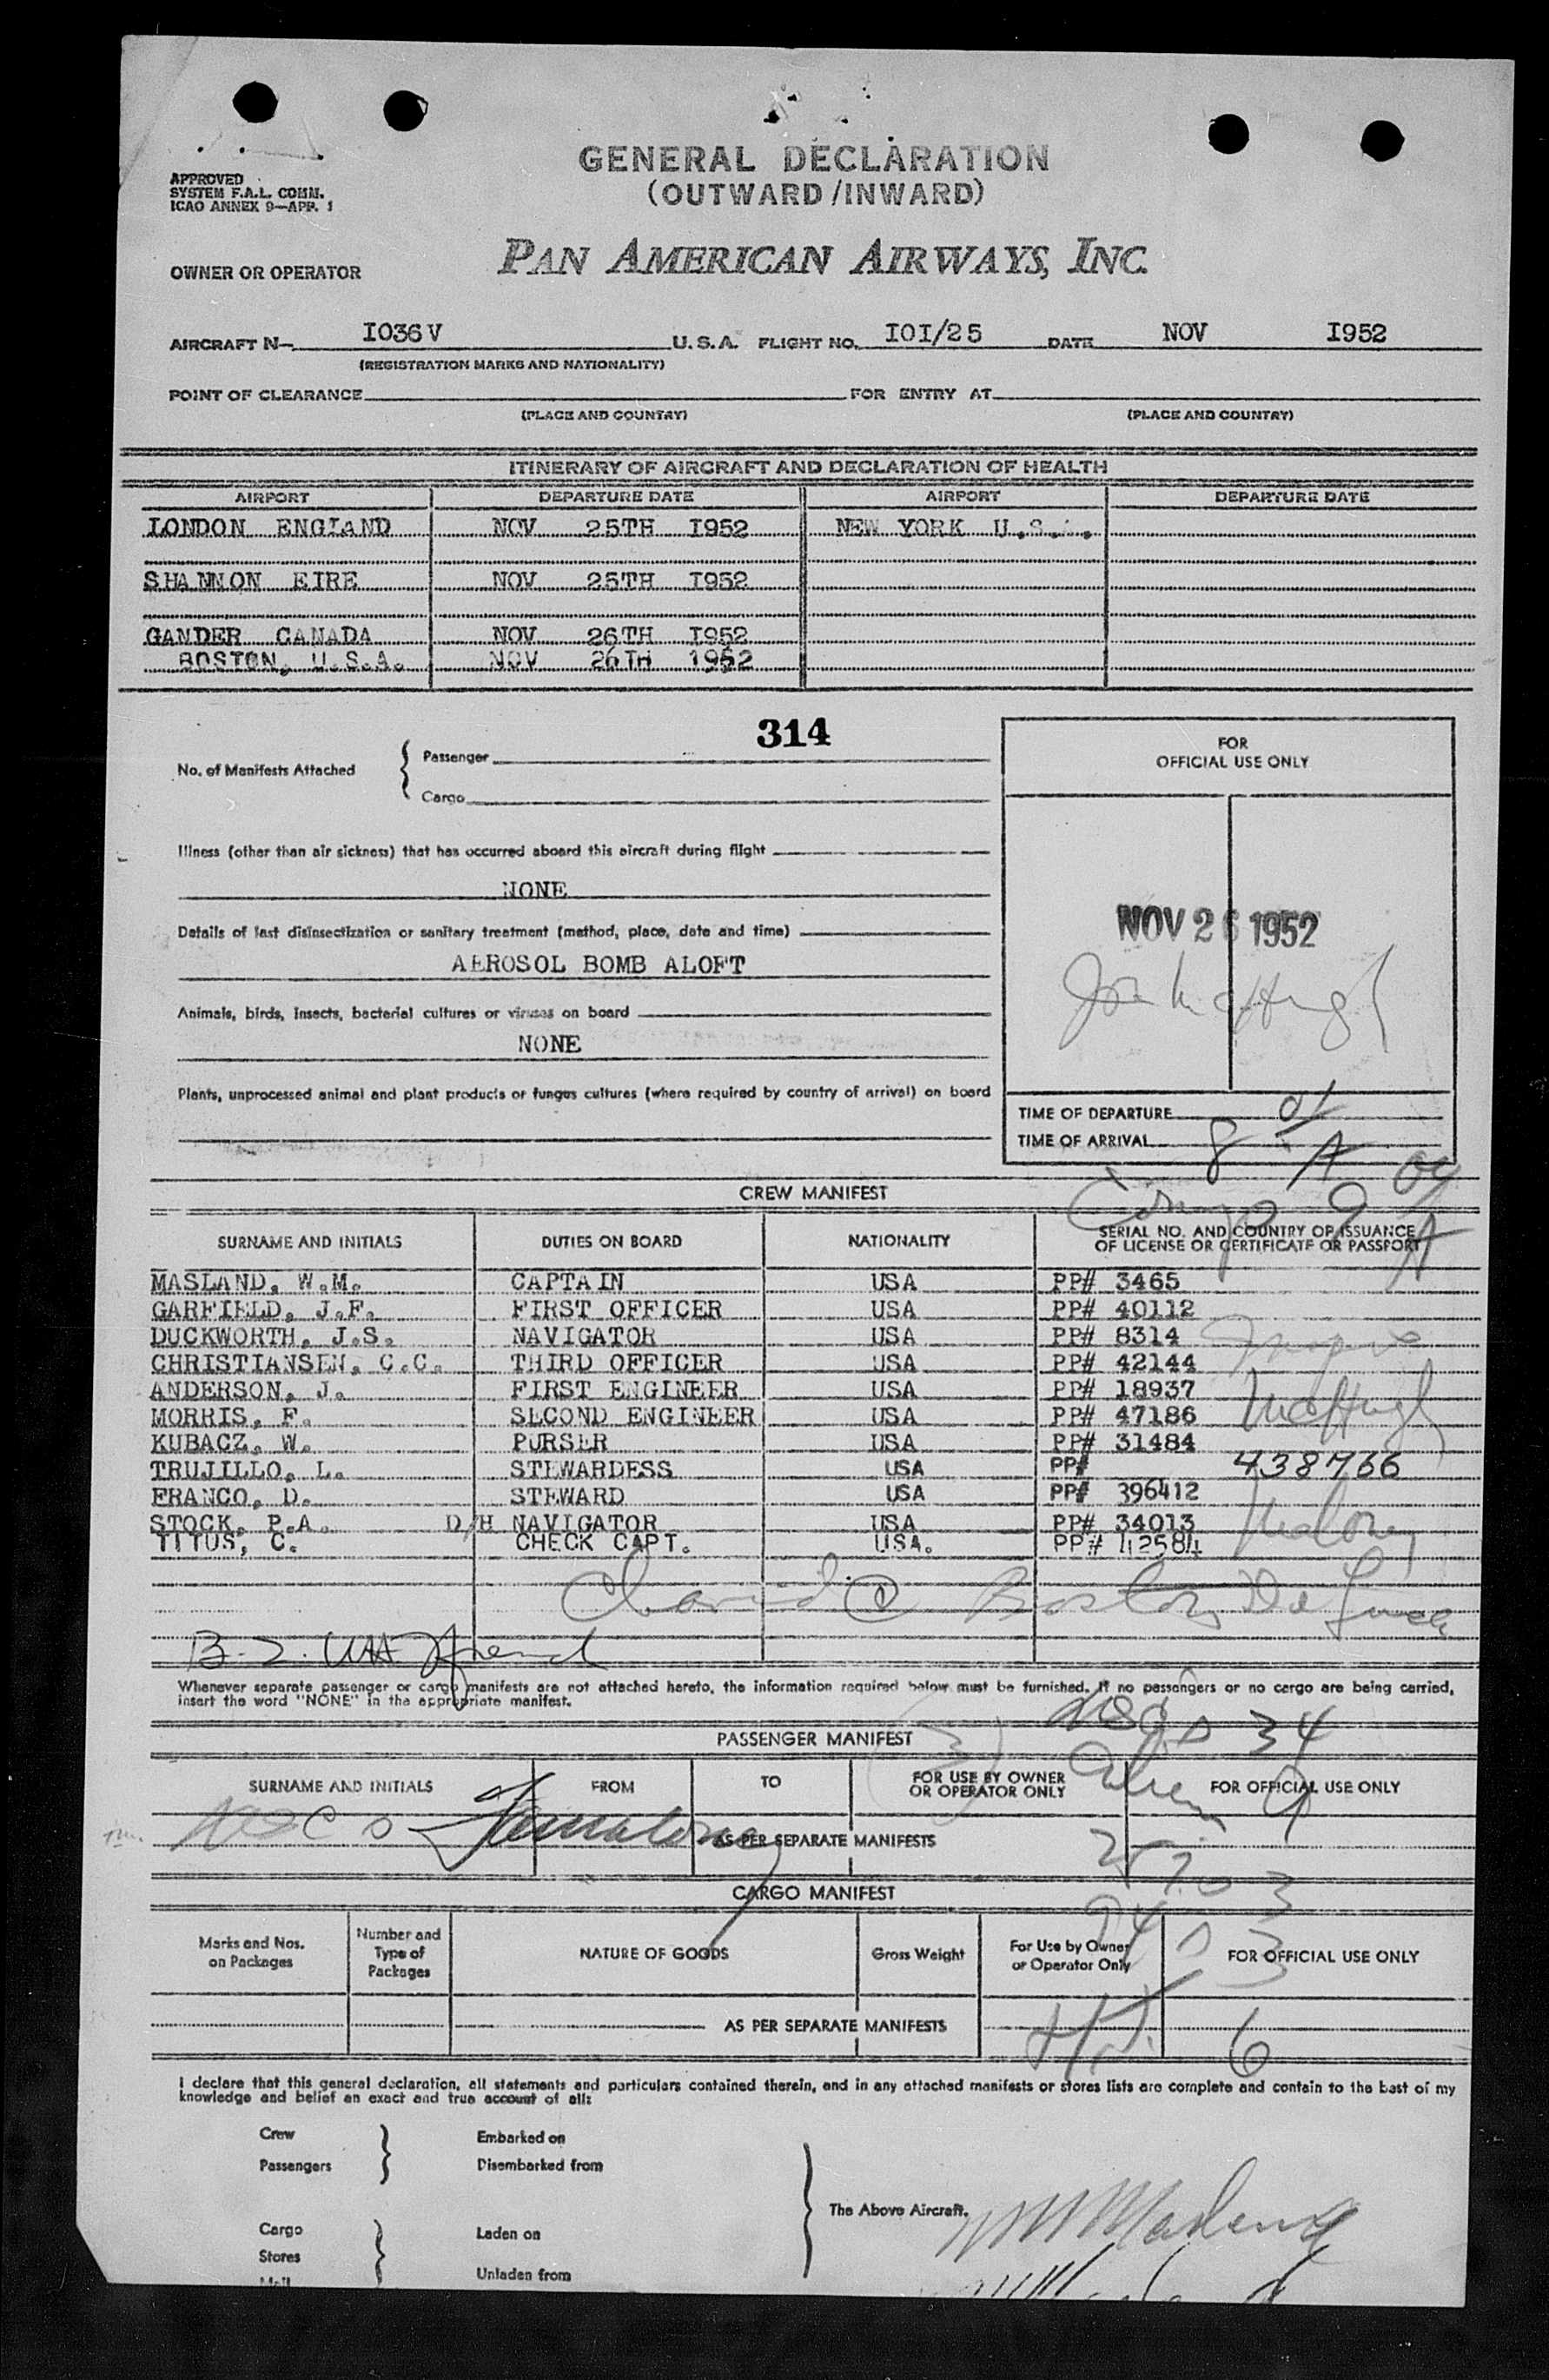 GENERAL DECLARATION
(OUTWARD/INWARD)
APPROVED
SYSTEM F.A.L. COMM.
ICAO ANNEX 9—APP. 1
OWNER OR OPERATOR PAN AMERICAN AIRWAYS, INC.
AIRCRAFT N- I036V U.S.A. FLIGHT NO. I0I/25 DATE NOV I952
(REGISTRATION MARKS AND NATIONALITY)
POINT OF CLEARANCE FOR ENTRY AT
(PLACE AND COUNTRY) (PLACE AND COUNTRY)
ITINERARY OF AIRCRAFT AND DECLARATION OF HEALTH
AIRPORT DEPARTURE DATE AIRPORT DEPARTURE DATE
LONDON ENGLAND NOV 25TH I952 NEW YORK U.S.A.
SHANNON EIRE NOV 25TH I952
GANDER CANADA NOV 26TH I952
BOSTON, U.S.A. NOV 26TH 1952
314
No. of Manifests Attached { Passenger
Cargo
FOR
OFFICIAL USE ONLY
Illness (other than air sickness) that has occurred aboard this aircraft during flight
NONE
Details of last disinsectization or sanitary treatment (method, place, date and time)
AEROSOL BOMB ALOFT
NOV 26 1952
Animals, birds, insects, bacterial cultures or viruses on board
NONE
Plants, unprocessed animal and plant products or fungus cultures (where required by country of arrival) on board
TIME OF DEPARTURE
TIME OF ARRIVAL 8 01 A
CREW MANIFEST
SURNAME AND INITIALS DUTIES ON BOARD NATIONALITY SERIAL NO. AND COUNTRY OF ISSUANCE
OF LICENSE OR CERTIFICATE OR PASSPORT
MASLAND, W.M. CAPTAIN USA PP# 3465
GARFIELD, J.F. FIRST OFFICER USA PP# 40112
DUCKWORTH, J.S. NAVIGATOR USA PP# 8314
CHRISTIANSEN, C.C. THIRD OFFICER USA PP# 42144
ANDERSON, J. FIRST ENGINEER USA PP# 18937
MORRIS, F. SECOND ENGINEER USA PP# 47186
KUBACZ, W. PURSER USA PP# 31484
TRUJILLO, L. STEWARDESS USA PP# 438766
FRANCO, D. STEWARD USA PP# 396412
STOCK, P.A. D/H NAVIGATOR USA PP# 34013
TITUS, C. CHECK CAPT. USA. PP# 42584
Whenever separate passenger or cargo manifests are not attached hereto, the information required below must be furnished. If no passengers or no cargo are being carried,
insert the word "NONE" in the appropriate manifest.
34
PASSENGER MANIFEST
SURNAME AND INITIALS FROM TO FOR USE BY OWNER
OR OPERATOR ONLY FOR OFFICIAL USE ONLY
AS PER SEPARATE MANIFESTS
CARGO MANIFEST
Marks and Nos.
on Packages Number and
Type of
Packages NATURE OF GOODS Gross Weight For Use by Owner
or Operator Only FOR OFFICIAL USE ONLY
AS PER SEPARATE MANIFESTS
6
I declare that this general declaration, all statements and particulars contained therein, and in any attached manifests or stores lists are complete and contain to the best of my
knowledge and belief an exact and true account of all:
Crew Embarked on
Passengers Disembarked from
The Above Aircraft.
Cargo Laden on
Stores
Mail Unladen from